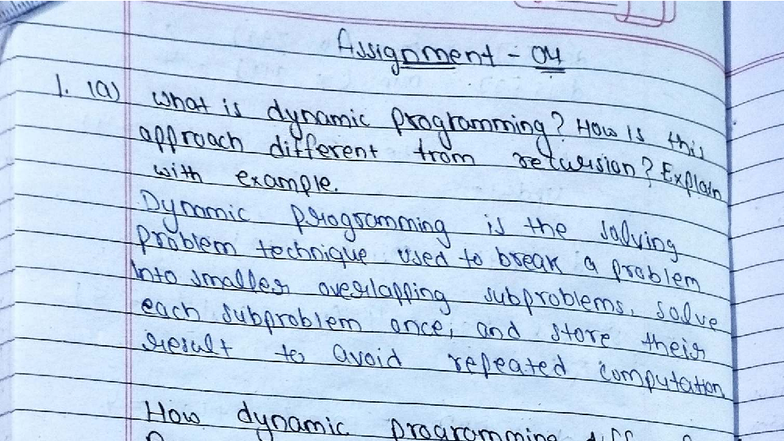 Assignment - 04
1. (a) What is dynamic programming? How is this
approach different from recursion? Explain
with example.
Dynamic programming is the solving
problem technique used to break a problem
into smaller overlapping subproblems, solve
each subproblem once, and store their
result to avoid repeated computation
How dynamic programming